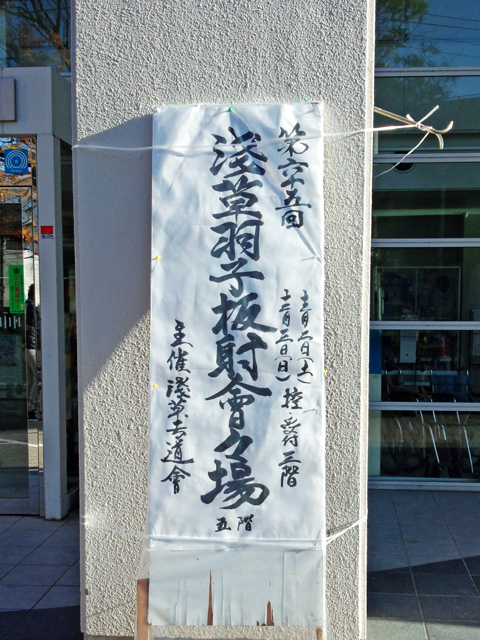 第六十五回
十二月二日(土)
十二月三日(日)
控・受付三階
淺草羽子板射會々場
五階
主催淺草弓道會